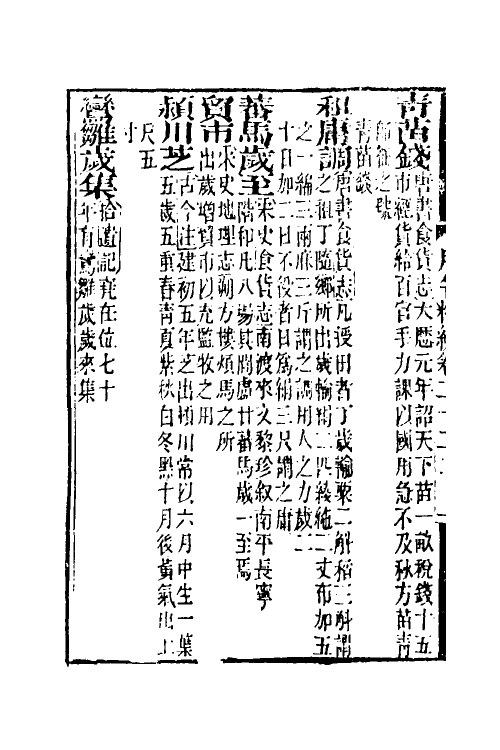 月令粹編卷二十二
青苗錢唐書食貨志大歷元年詔天下苗一畝稅錢十五
市輕貨給百官手力課以國用急不及秋方苗青
即征之號
青苗錢
租庸調唐書食貨志凡授田者丁歲輸粟二斛稻三斛謂
之租丁隨鄉所出歲輸絹二匹綾絁二丈布加五
之一綿三兩麻三斤謂之調用人之力歲二
十日加二日不役者日爲絹三尺謂之庸
蕃馬歲至宋史食貨志南渡來文黎珍敘南平長寧
階和凡八場其間盧甘蕃馬歲一至焉
貿市宋史地理志朔方樓煩馬之所
出歲增貿市以充監牧之用
潁川芝古今注建初五年芝出潁川常以六月中生一葉
五歲五重春青夏紫秋白冬黑十月後黃氣出上
尺五
寸
鸞雛歲集拾遺記堯在位七十
年有鸞雛歲歲來集